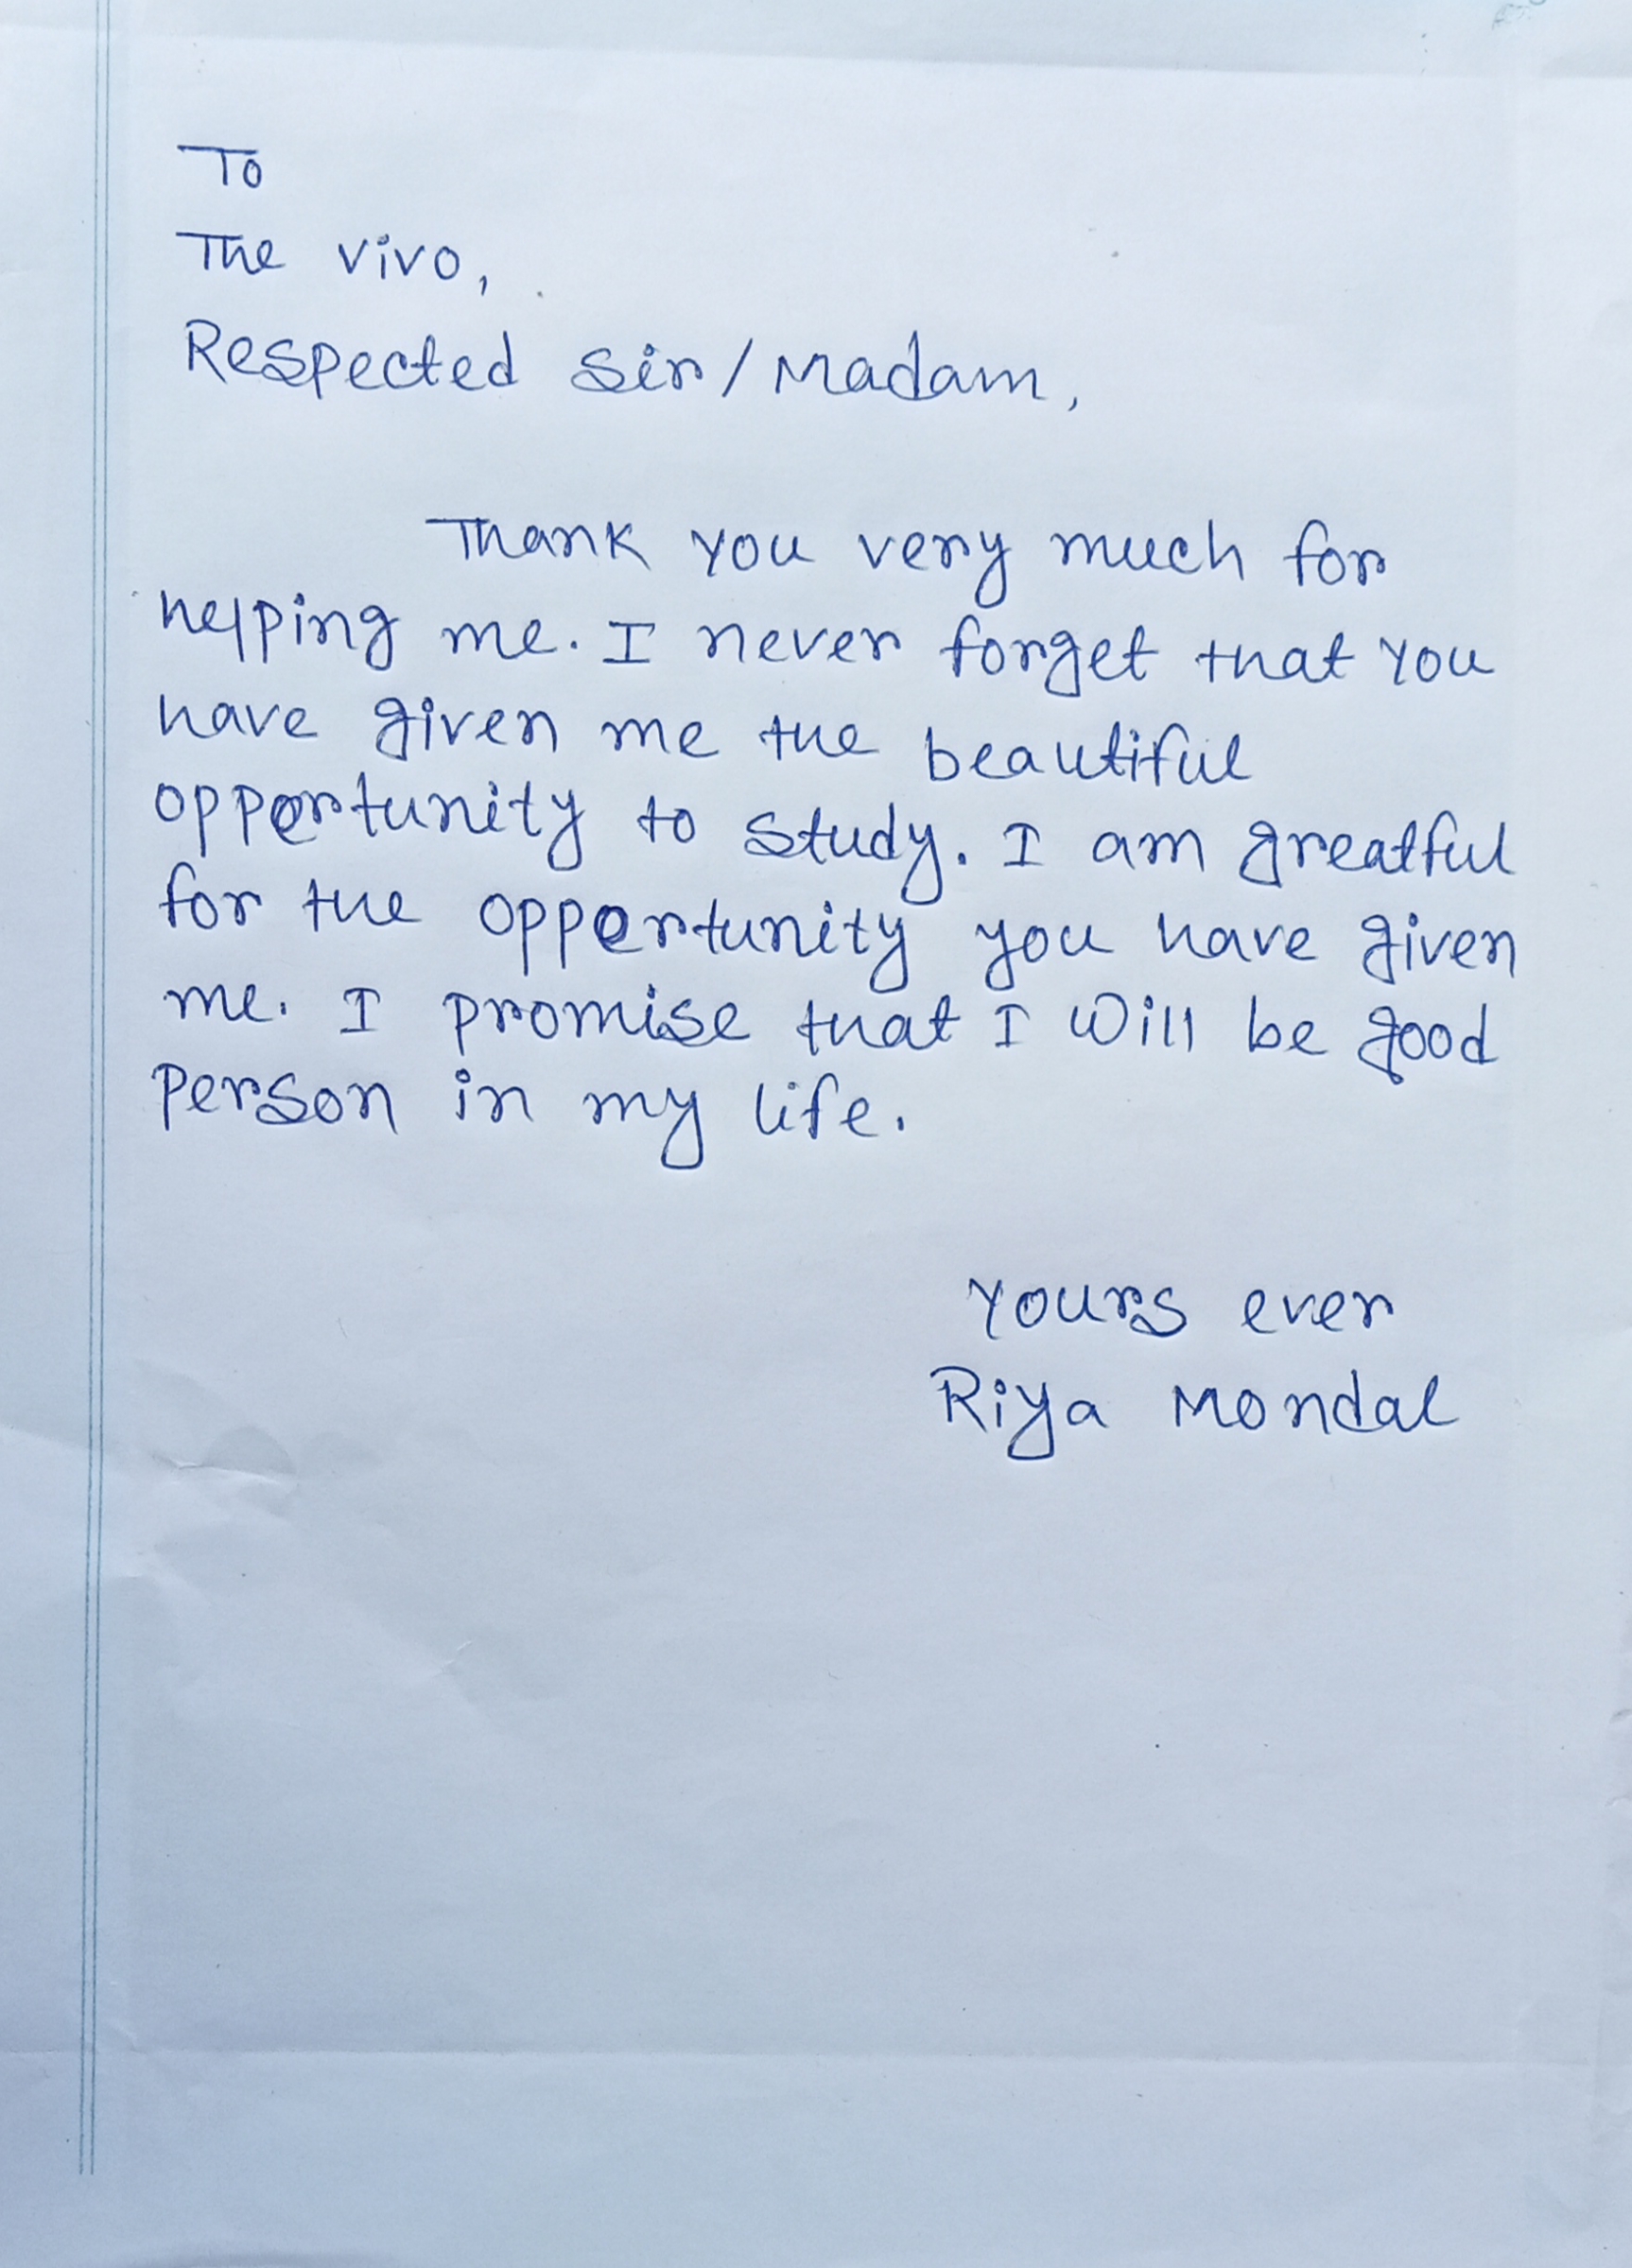 To
The vivo,
Respected Sir/Madam,
Thank you very much for
helping me. I never forget that you
have given me the beautiful
opportunity to study. I am greatful
for the opportunity you have given
me. I promise that I will be good
person in my life.
Yours ever
Riya Mondal